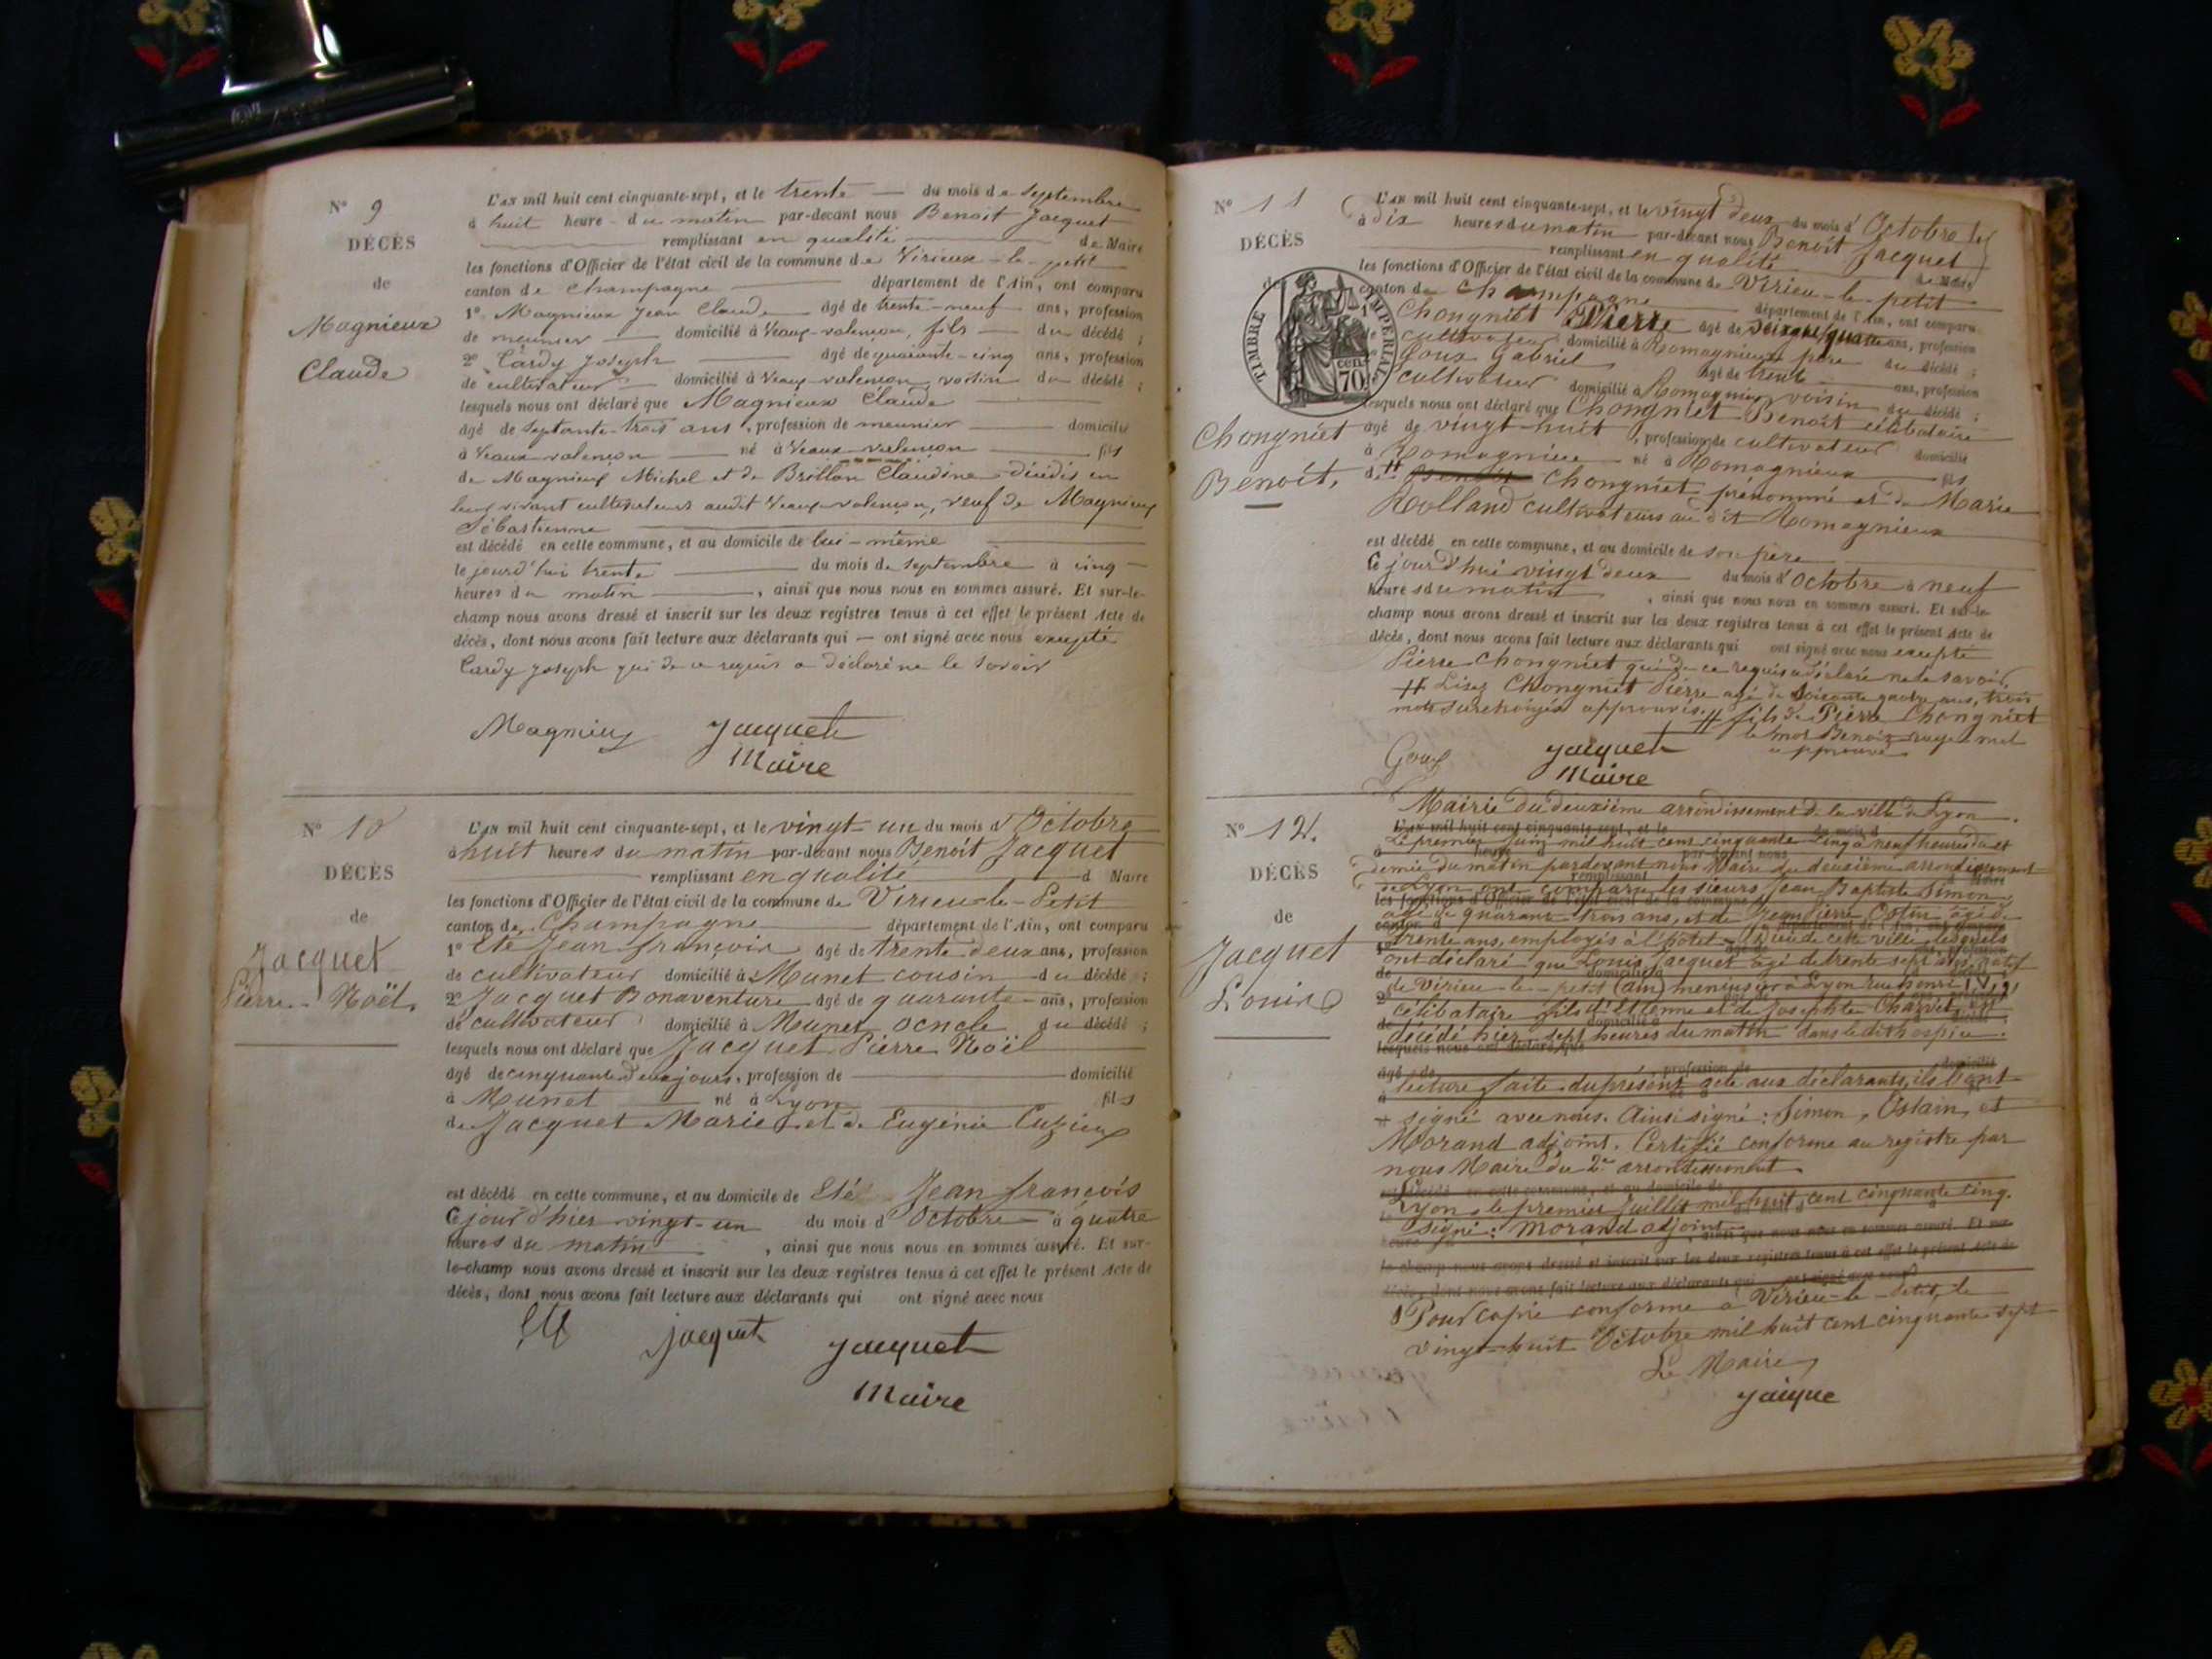 N° 9
DÉCÈS
de
Magnieux
Claude
L'AN mil huit cent cinquante-sept, et le trente — du mois de Septembre
à huit heure du matin par-devant nous Benoit Jacquet
remplissant en qualité de Maire
les fonctions d'Officier de l'état civil de la commune de Virieux-le-petit
canton de Champagne département de l'Ain, ont comparu
1° Magnieux Jean Claude âgé de trente-neuf ans, profession
de meunier domicilié à Veaux-valençon, fils du décédé ;
2° Cardy Joseph âgé de quarante-cinq ans, profession
de cultivateur domicilié à Veaux-valençon voisin du décédé ;
lesquels nous ont déclaré que Magnieux Claude
âgé de septante-trois ans, profession de meunier domicilié
à Veaux-valençon né à Veaux-valençon fils
de Magnieux Michel et de Brillon Claudine décédés en
leur vivant cultivateurs audit Veaux-valençon, veuf de Magnieux
Sébastienne
est décédé en cette commune, et au domicile de lui-même
le jourd'hui trente du mois de Septembre à cinq
heures du matin, ainsi que nous nous en sommes assuré. Et sur-le-
champ nous avons dressé et inscrit sur les deux registres tenus à cet effet le présent Acte de
décès, dont nous avons fait lecture aux déclarants qui — ont signé avec nous excepté
Cardy Joseph qui de ce requis a déclaré ne le savoir
Magnieux Jacquet
Maire
N° 10
DÉCÈS
de
Jacquet
Pierre-Noël.
L'AN mil huit cent cinquante-sept, et le vingt-un du mois d'Octobre
à huit heures du matin par-devant nous Benoît Jacquet
remplissant en qualité d Maire
les fonctions d'Officier de l'état civil de la commune de Virieu-le-Petit
canton de Champagne département de l'Ain, ont comparu
1° Eté Jean françois âgé de trente deux ans, profession
de cultivateur domicilié à Munet cousin du décédé ;
2° Jacquet Bonaventure âgé de quarante ans, profession
de cultivateur domicilié à Munet, oncle du décédé ;
lesquels nous ont déclaré que Jacquet Pierre Noël
âgé de cinquante deux jours, profession de domicilié
à Munet né à Lyon fils
de Jacquet Marie et de Eugénie Cuzieux
est décédé en cette commune, et au domicile de Eté Jean françois
Ce jour d'hier vingt-un du mois d'Octobre à quatre
heures du matin, ainsi que nous nous en sommes assuré. Et sur-
le-champ nous avons dressé et inscrit sur les deux registres tenus à cet effet le présent Acte de
décès, dont nous avons fait lecture aux déclarants qui ont signé avec nous
Eté jacquet Jacquet
Maire
N° 11
DÉCÈS
de
TIMBRE IMPERIAL
cen.
70
Chongniet
Benoît,
L'AN mil huit cent cinquante-sept, et le vingt deux du mois d'Octobre
à dix heures du matin par-devant nous Benoît Jacquet
remplissant en qualité de Maire
les fonctions d'Officier de l'état civil de la commune de Virieu-le-petit
canton de Champagne département de l'Ain, ont comparu
Chongniet Pierre âgé de soixante quatre ans, profession
cultivateur domicilié à Romagnieux père du décédé ;
Goux Gabriel âgé de trente ans, profession
cultivateur domicilié à Romagnieux voisin du décédé ;
lesquels nous ont déclaré que Chongniet Benoît célibataire
âgé de vingt-huit, profession de cultivateur domicilié
à Romagnieux né à Romagnieux fils
de # Benoît Chongniet prénommé et de Marie
Rolland cultivateurs au dit Romagnieux
est décédé en cette commune, et au domicile de son père
Ce jourd'hui vingt deux du mois d'Octobre à neuf
heures du matin, ainsi que nous nous en sommes assuré. Et sur-le-
champ nous avons dressé et inscrit sur les deux registres tenus à cet effet le présent Acte de
décès, dont nous avons fait lecture aux déclarants qui ont signé avec nous excepté
Pierre Chongniet qui de ce requis a déclaré ne le savoir,
# Lisez Chongniet Pierre âgé de Soixante quatre ans, trois
mots surchargés approuvés. # fils de Pierre Chongniet
le mot Benoît rayé nul
approuvé
Goux Jacquet
Maire
N° 12.
DÉCÈS
de
Jacquet
Louis
Mairie du deuxième arrondissement de la ville de Lyon.
Le premier Juin mil huit cent cinquante cinq à neuf heures et
demie du matin pardevant nous Maire du deuxième arrondissement
de Lyon ont comparu les sieurs Jean Baptiste Simon,
âgé de quarante trois ans, et de Jean Pierre Ostin âgé de
trente ans, employés à l'hôtel-Dieu de cette ville, lesquels
ont déclaré que Louis Jacquet âgé de trente sept ans, natif
de Virieu-le-petit (ain) menuisier à Lyon rue henri IV, 9,
célibataire fils d'Etienne et de Josephte Charvet, est
décédé hier sept heures du matin dans le dit hospice.
lecture faite du présent acte aux déclarants, ils l'ont
signé avec nous. Ainsi signé : Simon, Ostain, et
Morand adjoint. Certifié conforme au registre par
nous Maire du 2e arrondissement
Lyon, le premier Juillet mil huit cent cinquante cinq.
Signé : Morand adjoint
Pour copie conforme à Virieu-le-Petit, le
vingt-huit Octobre mil huit cent cinquante sept
Le Maire
Jacque